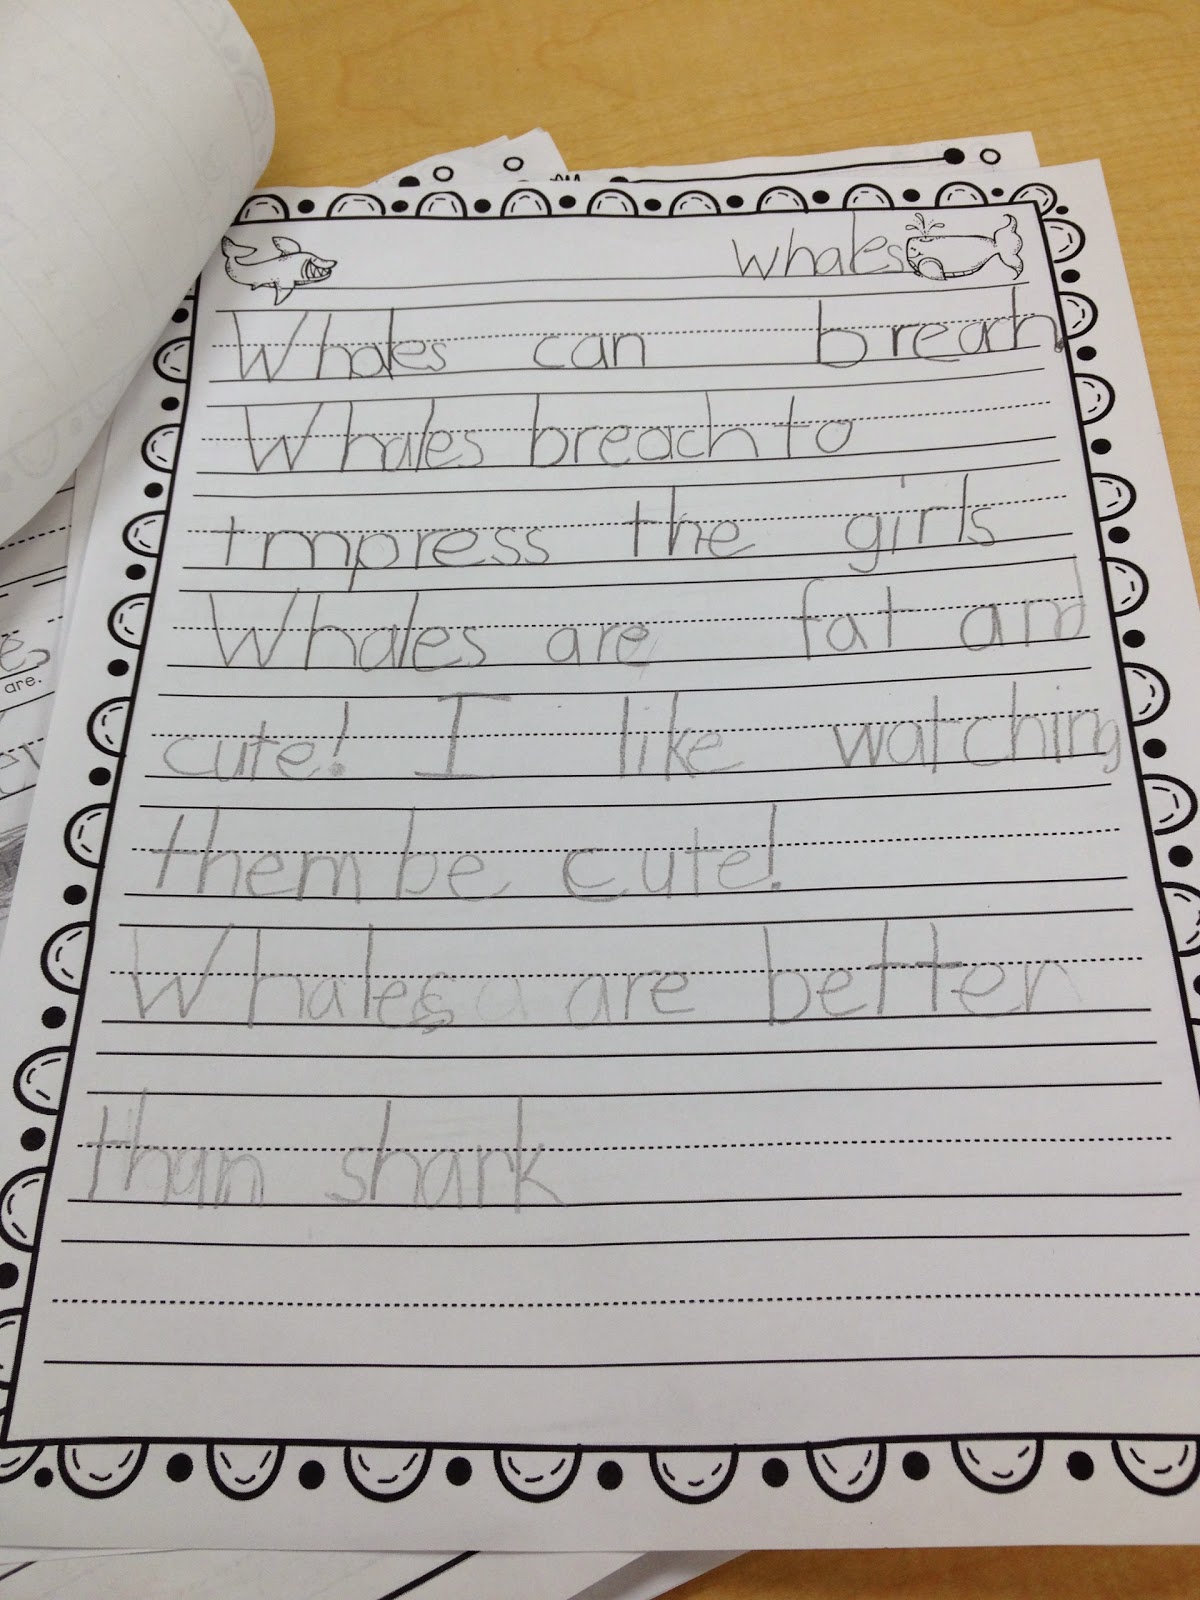 whales
Whales can breach.
Whales breach to
impress the girls
Whales are fat and
cute! I like watching
them be cute!
Whales are better
than shark
are.